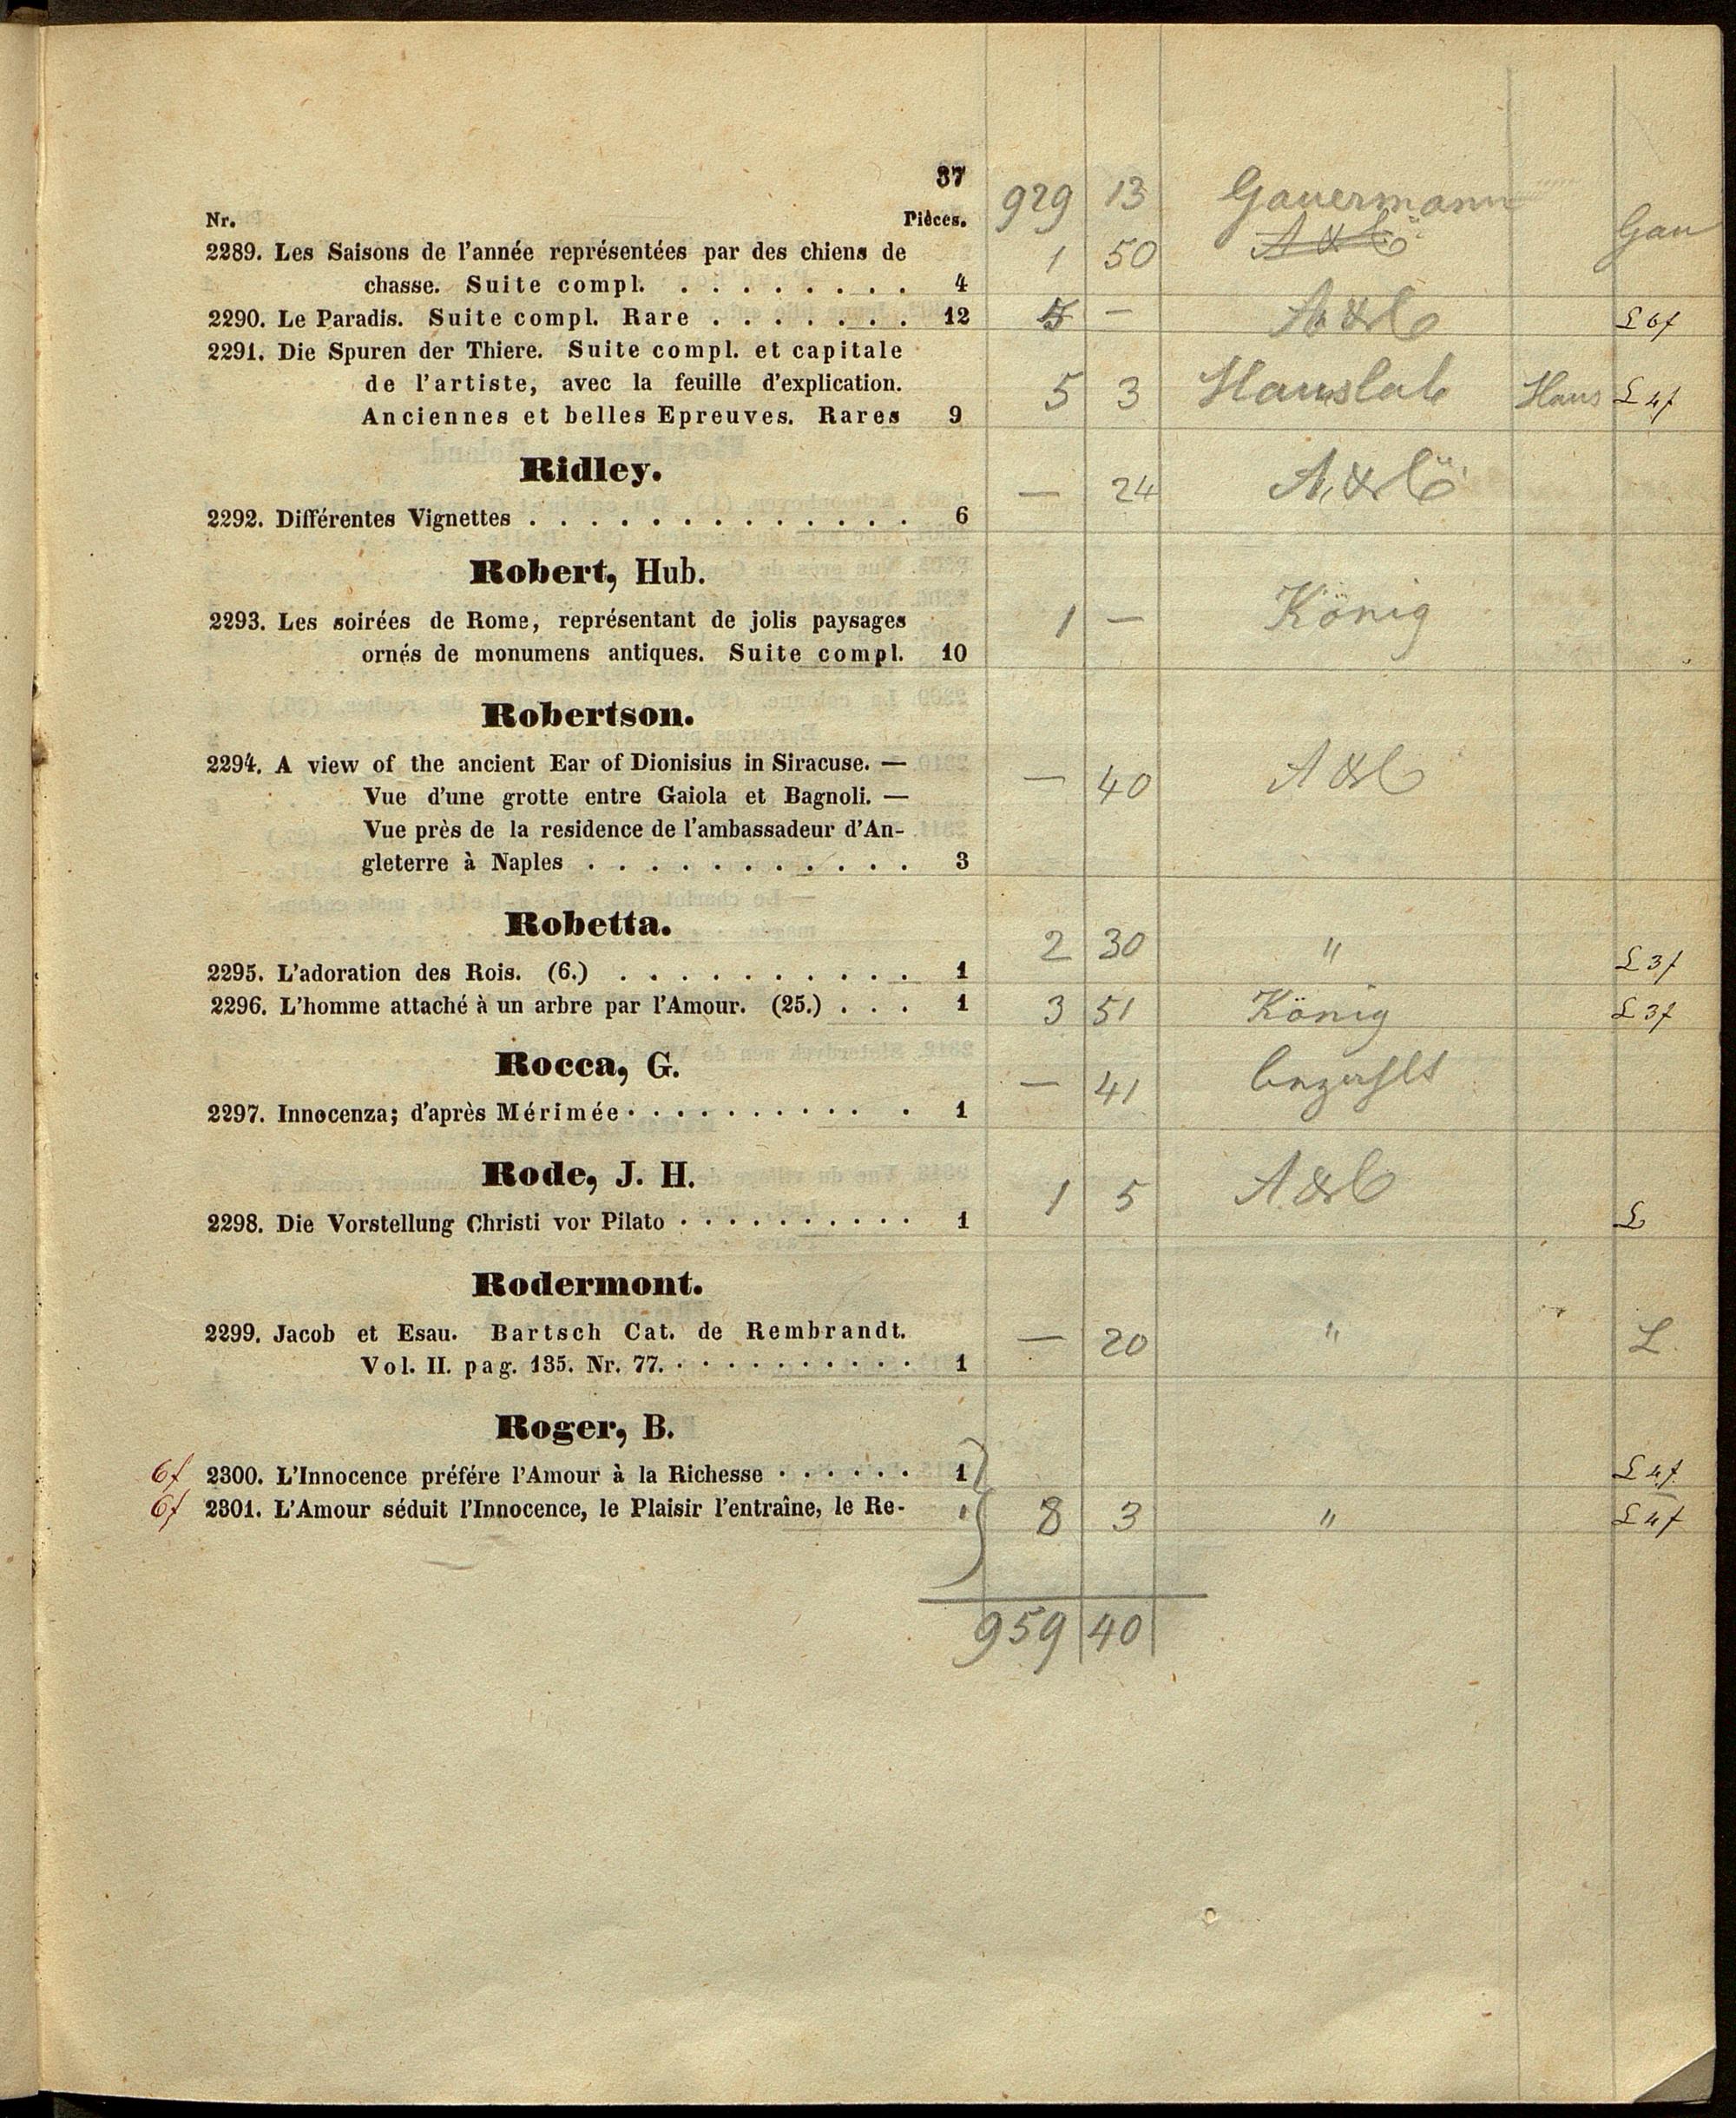 37
929 13 Gauermann
Nr. Pièces.
2289. Les Saisons de l'année représentées par des chiens de 1 50 A & C Gau
chasse. Suite compl. . . . . . . . . 4
2290. Le Paradis. Suite compl. Rare . . . . . . . 12 5 — A & C L 6f
2291. Die Spuren der Thiere. Suite compl. et capitale
de l'artiste, avec la feuille d'explication. 5 3 Hauslab Haus L 4f
Anciennes et belles Epreuves. Rares 9
Ridley.
— 24 A & C
2292. Différentes Vignettes . . . . . . . . . . . . . 6
Robert, Hub.
2293. Les soirées de Rome, représentant de jolis paysages 1 — König
ornés de monumens antiques. Suite compl. 10
Robertson.
2294. A view of the ancient Ear of Dionisius in Siracuse. — — 40 A & C
Vue d'une grotte entre Gaiola et Bagnoli. —
Vue près de la residence de l'ambassadeur d'An-
gleterre à Naples . . . . . . . . . . . 3
Robetta.
2295. L'adoration des Rois. (6.) . . . . . . . . . . 1 2 30 " L 3f
2296. L'homme attaché à un arbre par l'Amour. (25.) . . . 1 3 51 König L 3f
Rocca, G.
— 41
2297. Innocenza; d'après Mérimée . . . . . . . . . . 1
Rode, J. H.
1 5 A & C
2298. Die Vorstellung Christi vor Pilato . . . . . . . . . . 1 L
Rodermont.
2299. Jacob et Esau. Bartsch Cat. de Rembrandt. — 20 " L.
Vol. II. pag. 135. Nr. 77. . . . . . . . . . . 1
Roger, B.
6f 2300. L'Innocence préfére l'Amour à la Richesse . . . . . . 1 L 4f
6f 2301. L'Amour séduit l'Innocence, le Plaisir l'entraîne, le Re- 1 8 3 " L 4f
959 40